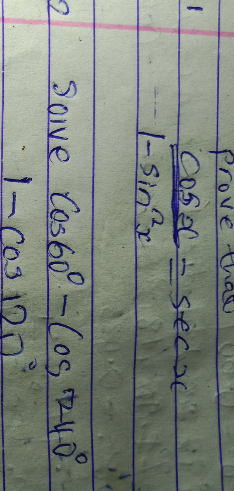 1 Prove that
Cos x = sec x
1 - sin²x
2 Solve Cos60° - Cos 240°
1 - Cos 120°